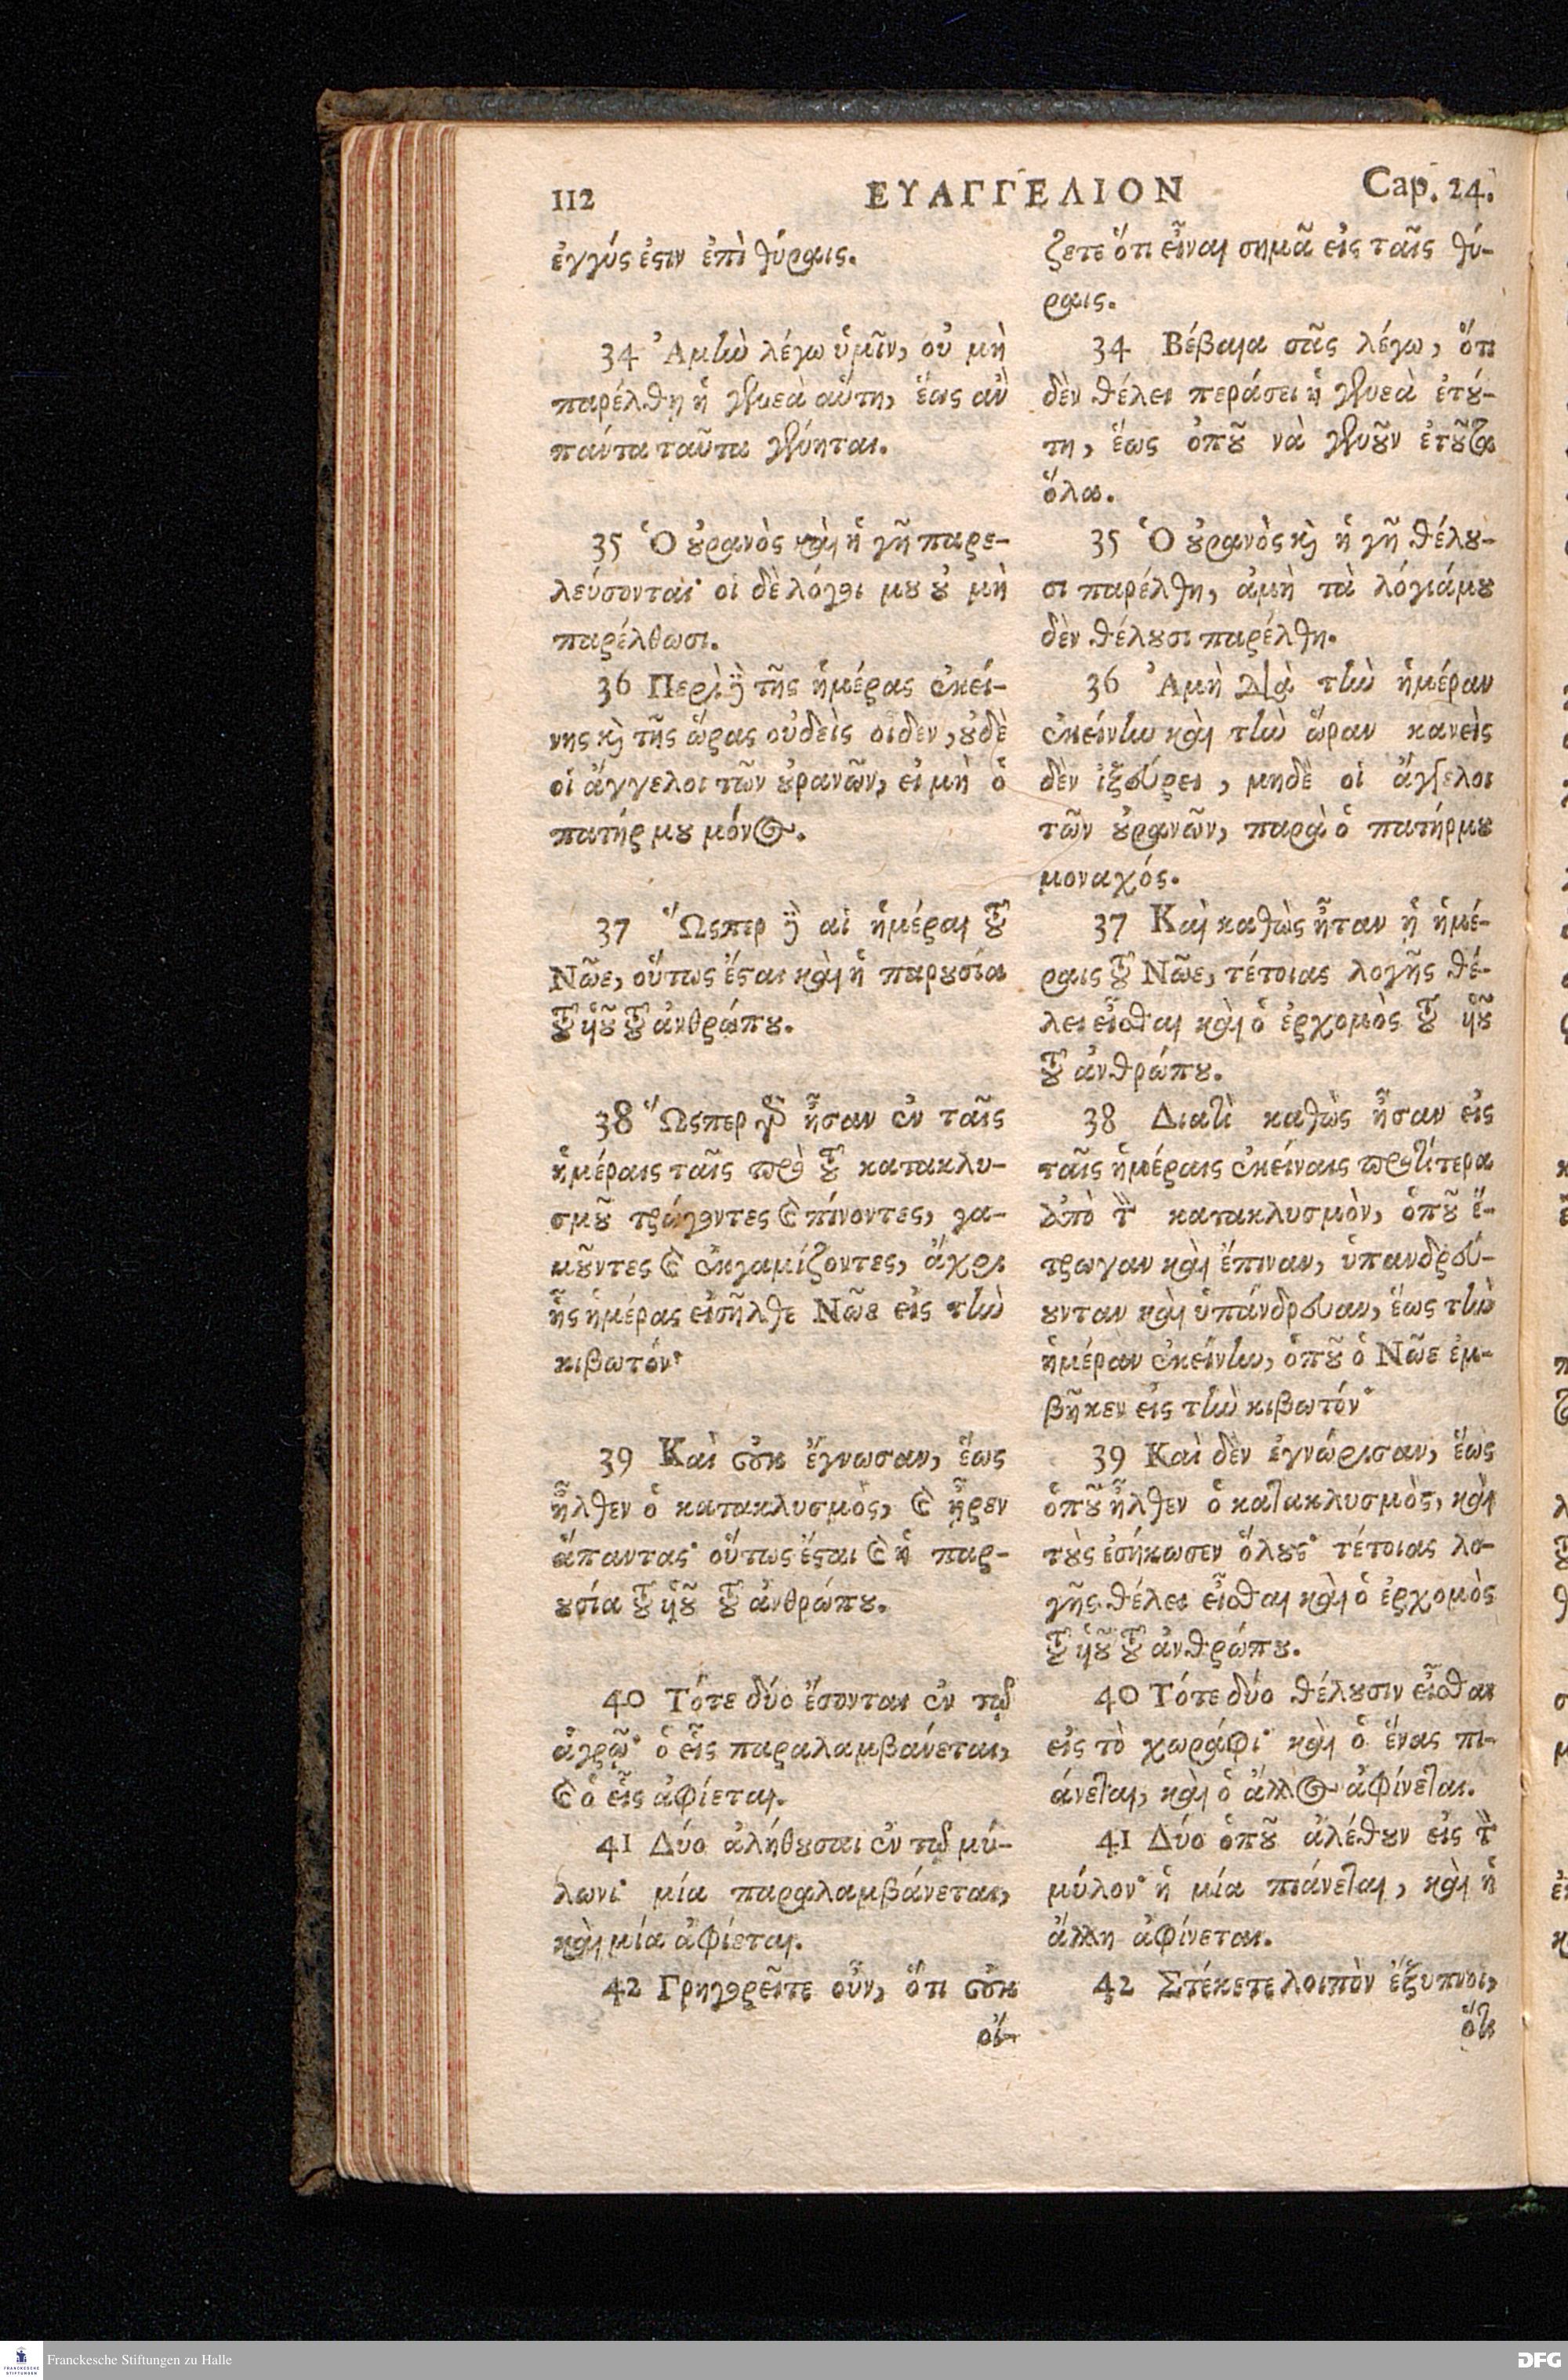 112 ΕΥΑΓΓΕΛΙΟΝ Cap. 24.
ἐγγύς ἐϛιν ἐπὶ θύραις.
34 Ἀμὴν λέγω ὑμῖν, οὐ μὴ
παρέλθῃ ἡ γενεὰ αὕτη, ἕως ἂν
πάντα ταῦτα γένηται.
35 Ὁ ȣ̓ρανὸς καὶ ἡ γῆ παρε-
λεύσονται· οἱ δὲ λόγοι μȣ ȣ̓ μὴ
παρέλθωσι.
36 Περὶ δὲ τῆς ἡμέρας ἐκεί-
νης κ̀ τῆς ὥρας οὐδεὶς οἶδεν, ȣ̓δὲ
οἱ ἄγγελοι τῶν ȣ̓ρανῶν, εἰ μὴ ὁ
πατήρ μȣ μόνος.
37 Ὥςπερ δὲ αἱ ἡμέραι τȣ͂
Νῶε, οὕτως ἔϛαι καὶ ἡ παρȣσία
τȣ͂ ὑȣ͂ τȣ͂ ἀνθρώπȣ.
38 Ὥςπερ γὰρ ἦσαν ἐν ταῖς
ἡμέραις ταῖς πρὸ τȣ͂ κατακλυ-
σμȣ͂ τρώγοντες καὶ πίνοντες, γα-
μȣ͂ντες καὶ ἐκγαμίζοντες, ἄχρι
ἧς ἡμέρας εἰσῆλθε Νῶε εἰς τὴν
κιβωτόν·
39 Καὶ οὐκ ἔγνωσαν, ἕως
ἦλθεν ὁ κατακλυσμὸς, καὶ ἦρεν
ἅπαντας· οὕτως ἔϛαι καὶ ἡ παρ-
ȣσία τȣ͂ ὑȣ͂ τȣ͂ ἀνθρώπȣ.
40 Τότε δύο ἔσονται ἐν τῷ
ἀγρῷ· ὁ εἷς παραλαμβάνεται,
καὶ ὁ εἷς ἀφίεται.
41 Δύο ἀλήθȣσαι ἐν τῷ μύ-
λωνι· μία παραλαμβάνεται,
καὶ μία ἀφίεται.
42 Γρηγορεῖτε οὖν, ὅτι οὐκ
οἴ-
ζετε ὅτι εἶναι σημᾶ εἰς ταῖς θύ-
ραις.
34 Βέβαια σᾶς λέγω, ὅτι
δὲν θέλει περάσει ἡ γενεὰ ἐτȣ́-
τη, ἕως ὁπȣ͂ νὰ γενȣ͂ν ἐτȣ͂τα
ὅλα.
35 Ὁ ȣ̓ρανὸς κ̀ ἡ γῆ θέλȣ-
σι παρέλθῃ, ἀμὴ τὰ λόγιάμȣ
δὲν θέλȣσι παρέλθῃ.
36 Ἀμὴ διὰ τὴν ἡμέραν
ἐκείνην καὶ τὴν ὥραν κανεὶς
δὲν ἰξεύρει, μηδὲ οἱ ἄγγελοι
τῶν ȣ̓ρανῶν, παρὰ ὁ πατήρμȣ
μοναχός.
37 Καὶ καθὼς ἦταν ᾑ ἡμέ-
ραις τȣ͂ Νῶε, τέτοιας λογῆς θέ-
λει εἶσθαι καὶ ὁ ἐρχομὸς τȣ͂ ὑȣ͂
τȣ͂ ἀνθρώπȣ.
38 Διατὶ καθὼς ἦσαν εἰς
ταῖς ἡμέραις ἐκείναις προτίτερα
ἀπὸ τὸν κατακλυσμὸν, ὁπȣ͂ ἔ-
τρωγαν καὶ ἔπιναν, ὑπανδρεύ-
ȣνταν καὶ ὑπάνδρευαν, ἕως τὴν
ἡμέραν ἐκείνην, ὁπȣ͂ ὁ Νῶε ἐμ-
βῆκεν εἰς τὴν κιβωτόν·
39 Καὶ δὲν ἐγνώρισαν, ἕως
ὁπȣ͂ ἦλθεν ὁ κατακλυσμὸς, καὶ
τȣ̀ς ἐσήκωσεν ὅλȣς· τέτοιας λο-
γῆς θέλει εἶσθαι καὶ ὁ ἐρχομὸς
τȣ͂ ὑȣ͂ τȣ͂ ἀνθρώπȣ.
40 Τότε δύο θέλȣσιν εἶσθαι
εἰς τὸ χωράφι· καὶ ὁ ἕνας πι-
άνεται, καὶ ὁ ἄλλος ἀφίνεται.
41 Δύο ὁπȣ͂ ἀλέθȣν εἰς τὸν
μύλον· ἡ μία πιάνεται, καὶ ἡ
ἄλλη ἀφίνεται.
42 Στέκετε λοιπὸν ἔξυπνοι,
ὅτι
Franckesche Stiftungen zu Halle
FRANCKESCHE STIFTUNGEN
DFG